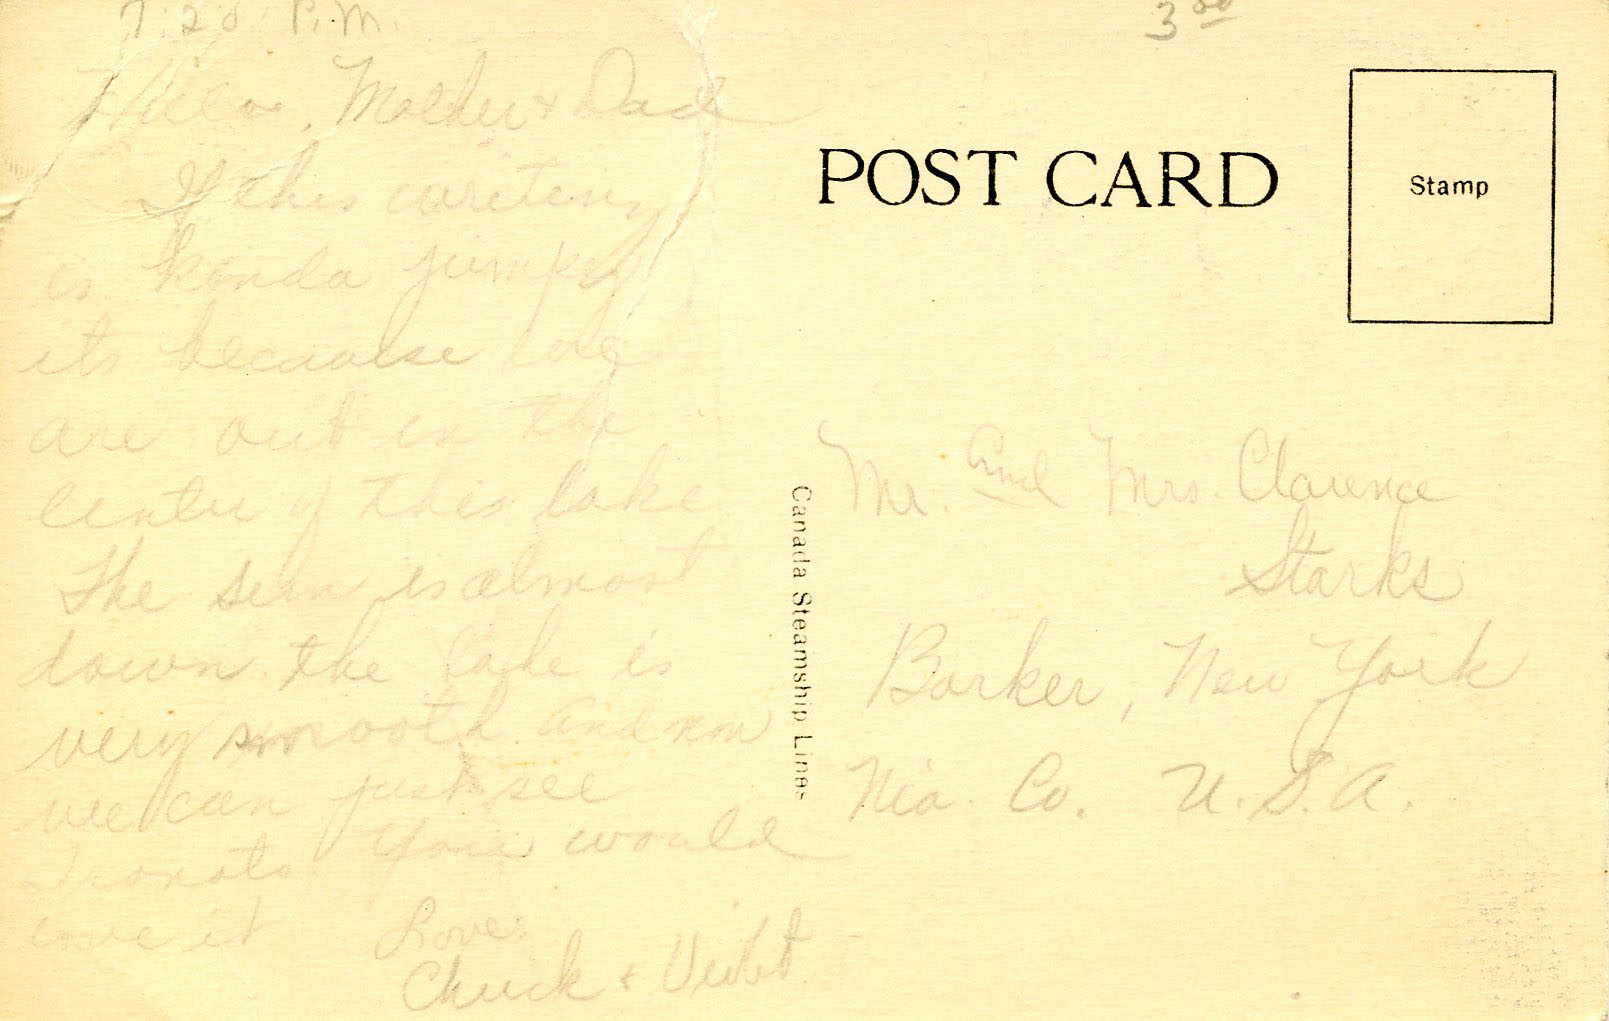 7:20 P.M.
Hello, Mother & Dad
If this writing
is kinda jumpy
its because we
are out in the
center of this lake
The sun is almost
down. the lake is
very smooth and now
we can just see
Tronoto You would
love it
Love
Chuck & Violet
3.00
POST CARD
Stamp
Canada Steamship Lines
Mr. and Mrs. Clarence
Starks
Barker, New York
Nia. Co. U.S.A.